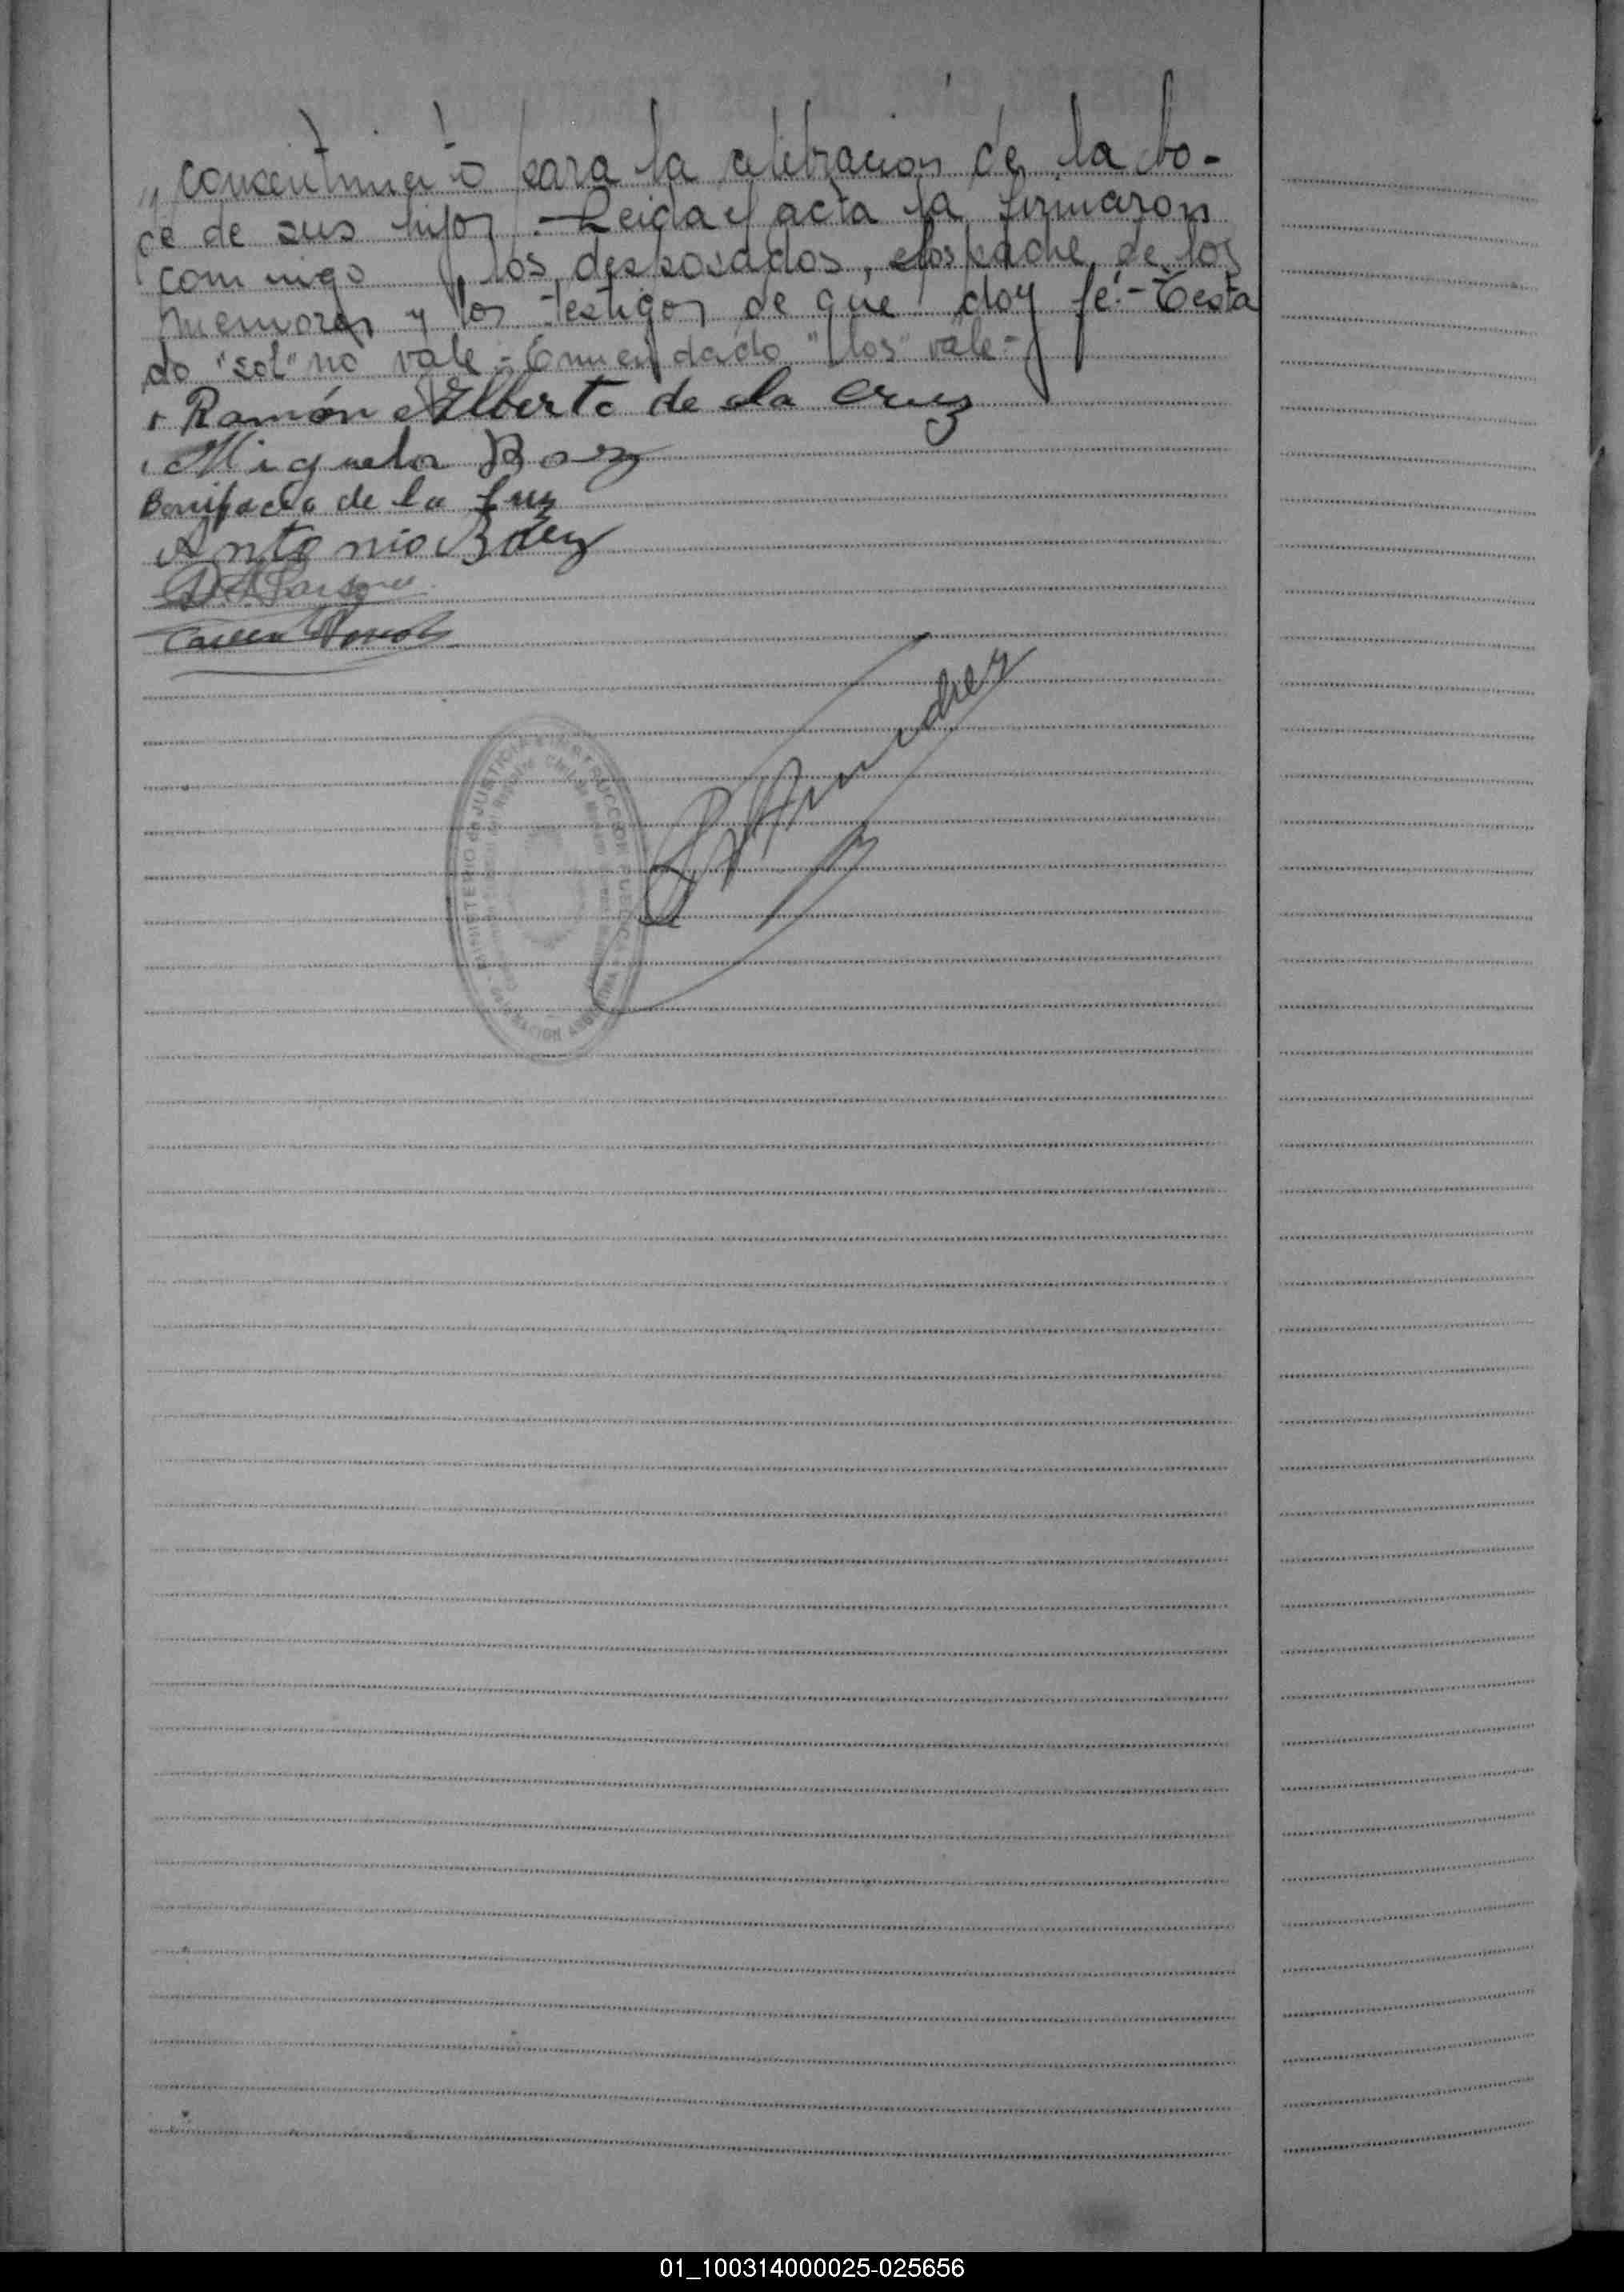 concentimiento para la celebracion de la bo-
de sus hijos.- Leida el acta la firmaron
conmigo, los desposados, los padre de los
menores y los testigos de que doy fé.- Testa
do "sol" no vale.- Enmendado "los" vale-
Ramón Alberto de la Cruz
Miguela Baez
Bonifacia de la Cruz
Antonio Baez
MINISTERIO de JUSTICIA e INSTRUCCION PUBLICA
NACION ARGENTINA
01_100314000025-025656